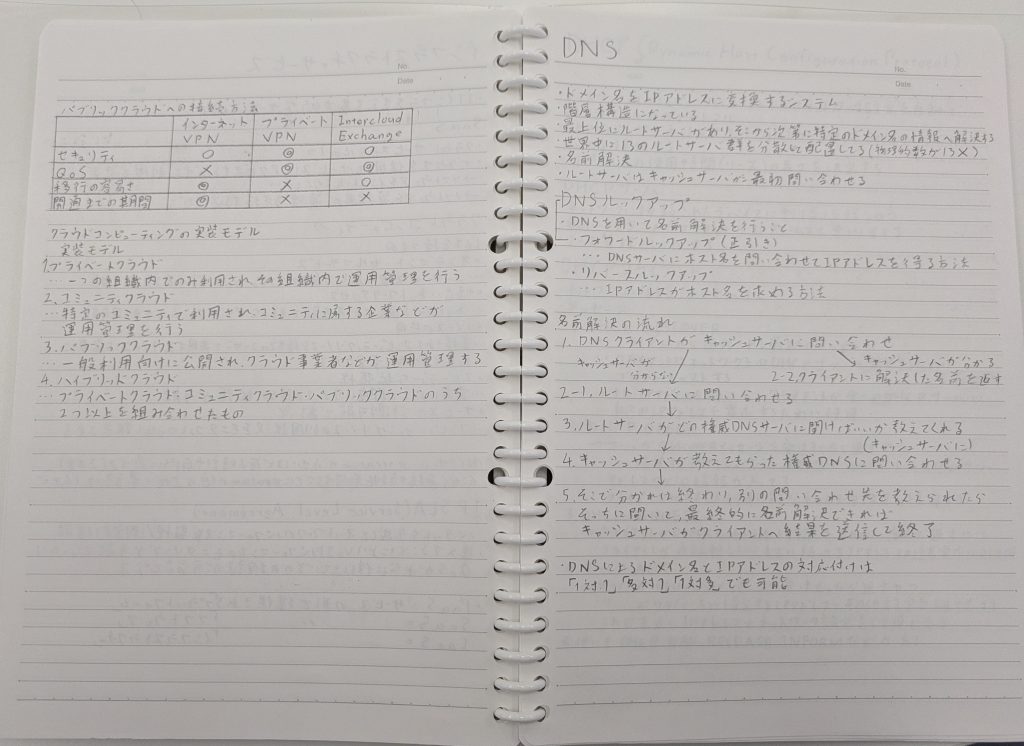 パブリッククラウドへの接続方法
インターネットVPN プライベートVPN Intercloud Exchange
セキュリティ ○ ◎ ○
QoS × ◎ ◎
移行の容易さ ◎ × ○
開通までの期間 ◎ × ×
クラウドコンピューティングの実装モデル
実装モデル
1.プライベートクラウド
…一つの組織内でのみ利用され、その組織内で運用管理を行う
2.コミュニティクラウド
…特定のコミュニティで利用され、コミュニティに属する企業などが
運用管理を行う
3.パブリッククラウド
…一般利用向けに公開され、クラウド事業者などが運用管理する
4.ハイブリッドクラウド
…プライベートクラウド・コミュニティクラウド・パブリッククラウドのうち
2つ以上を組み合わせたもの
DNS
No.
Date
・ドメイン名をIPアドレスに変換するシステム
・階層構造になっている
・最上位にルートサーバがあり、そこから次第に特定のドメイン名の情報へ解決する
・世界中に13のルートサーバ群を分散して配置してる(物理的数が13×)
・名前解決
・ルートサーバはキャッシュサーバが最初問い合わせる
DNSルックアップ
・DNSを用いて名前解決を行うこと
・フォワードルックアップ(正引き)
…DNSサーバにホスト名を問い合わせてIPアドレスを得る方法
・リバースルックアップ
…IPアドレスがホスト名を求める方法
名前解決の流れ
1.DNSクライアントがキャッシュサーバに問い合わせ
キャッシュサーバが分からない
キャッシュサーバが分かる
2-2.クライアントに解決した名前を返す
2-1.ルートサーバに問い合わせる
3.ルートサーバがどの権威DNSサーバに聞けばいいか教えてくれる
(キャッシュサーバに)
4.キャッシュサーバが教えてもらった権威DNSに問い合わせる
5.そこで分かれば終わり、別の問い合わせ先を教えられたら
そっちに聞いて、最終的に名前解決できれば
キャッシュサーバがクライアントへ結果を送信して終了
・DNSによるドメイン名とIPアドレスの対応付けは
「1対1」「多対1」「1対多」でも可能
No.
Date